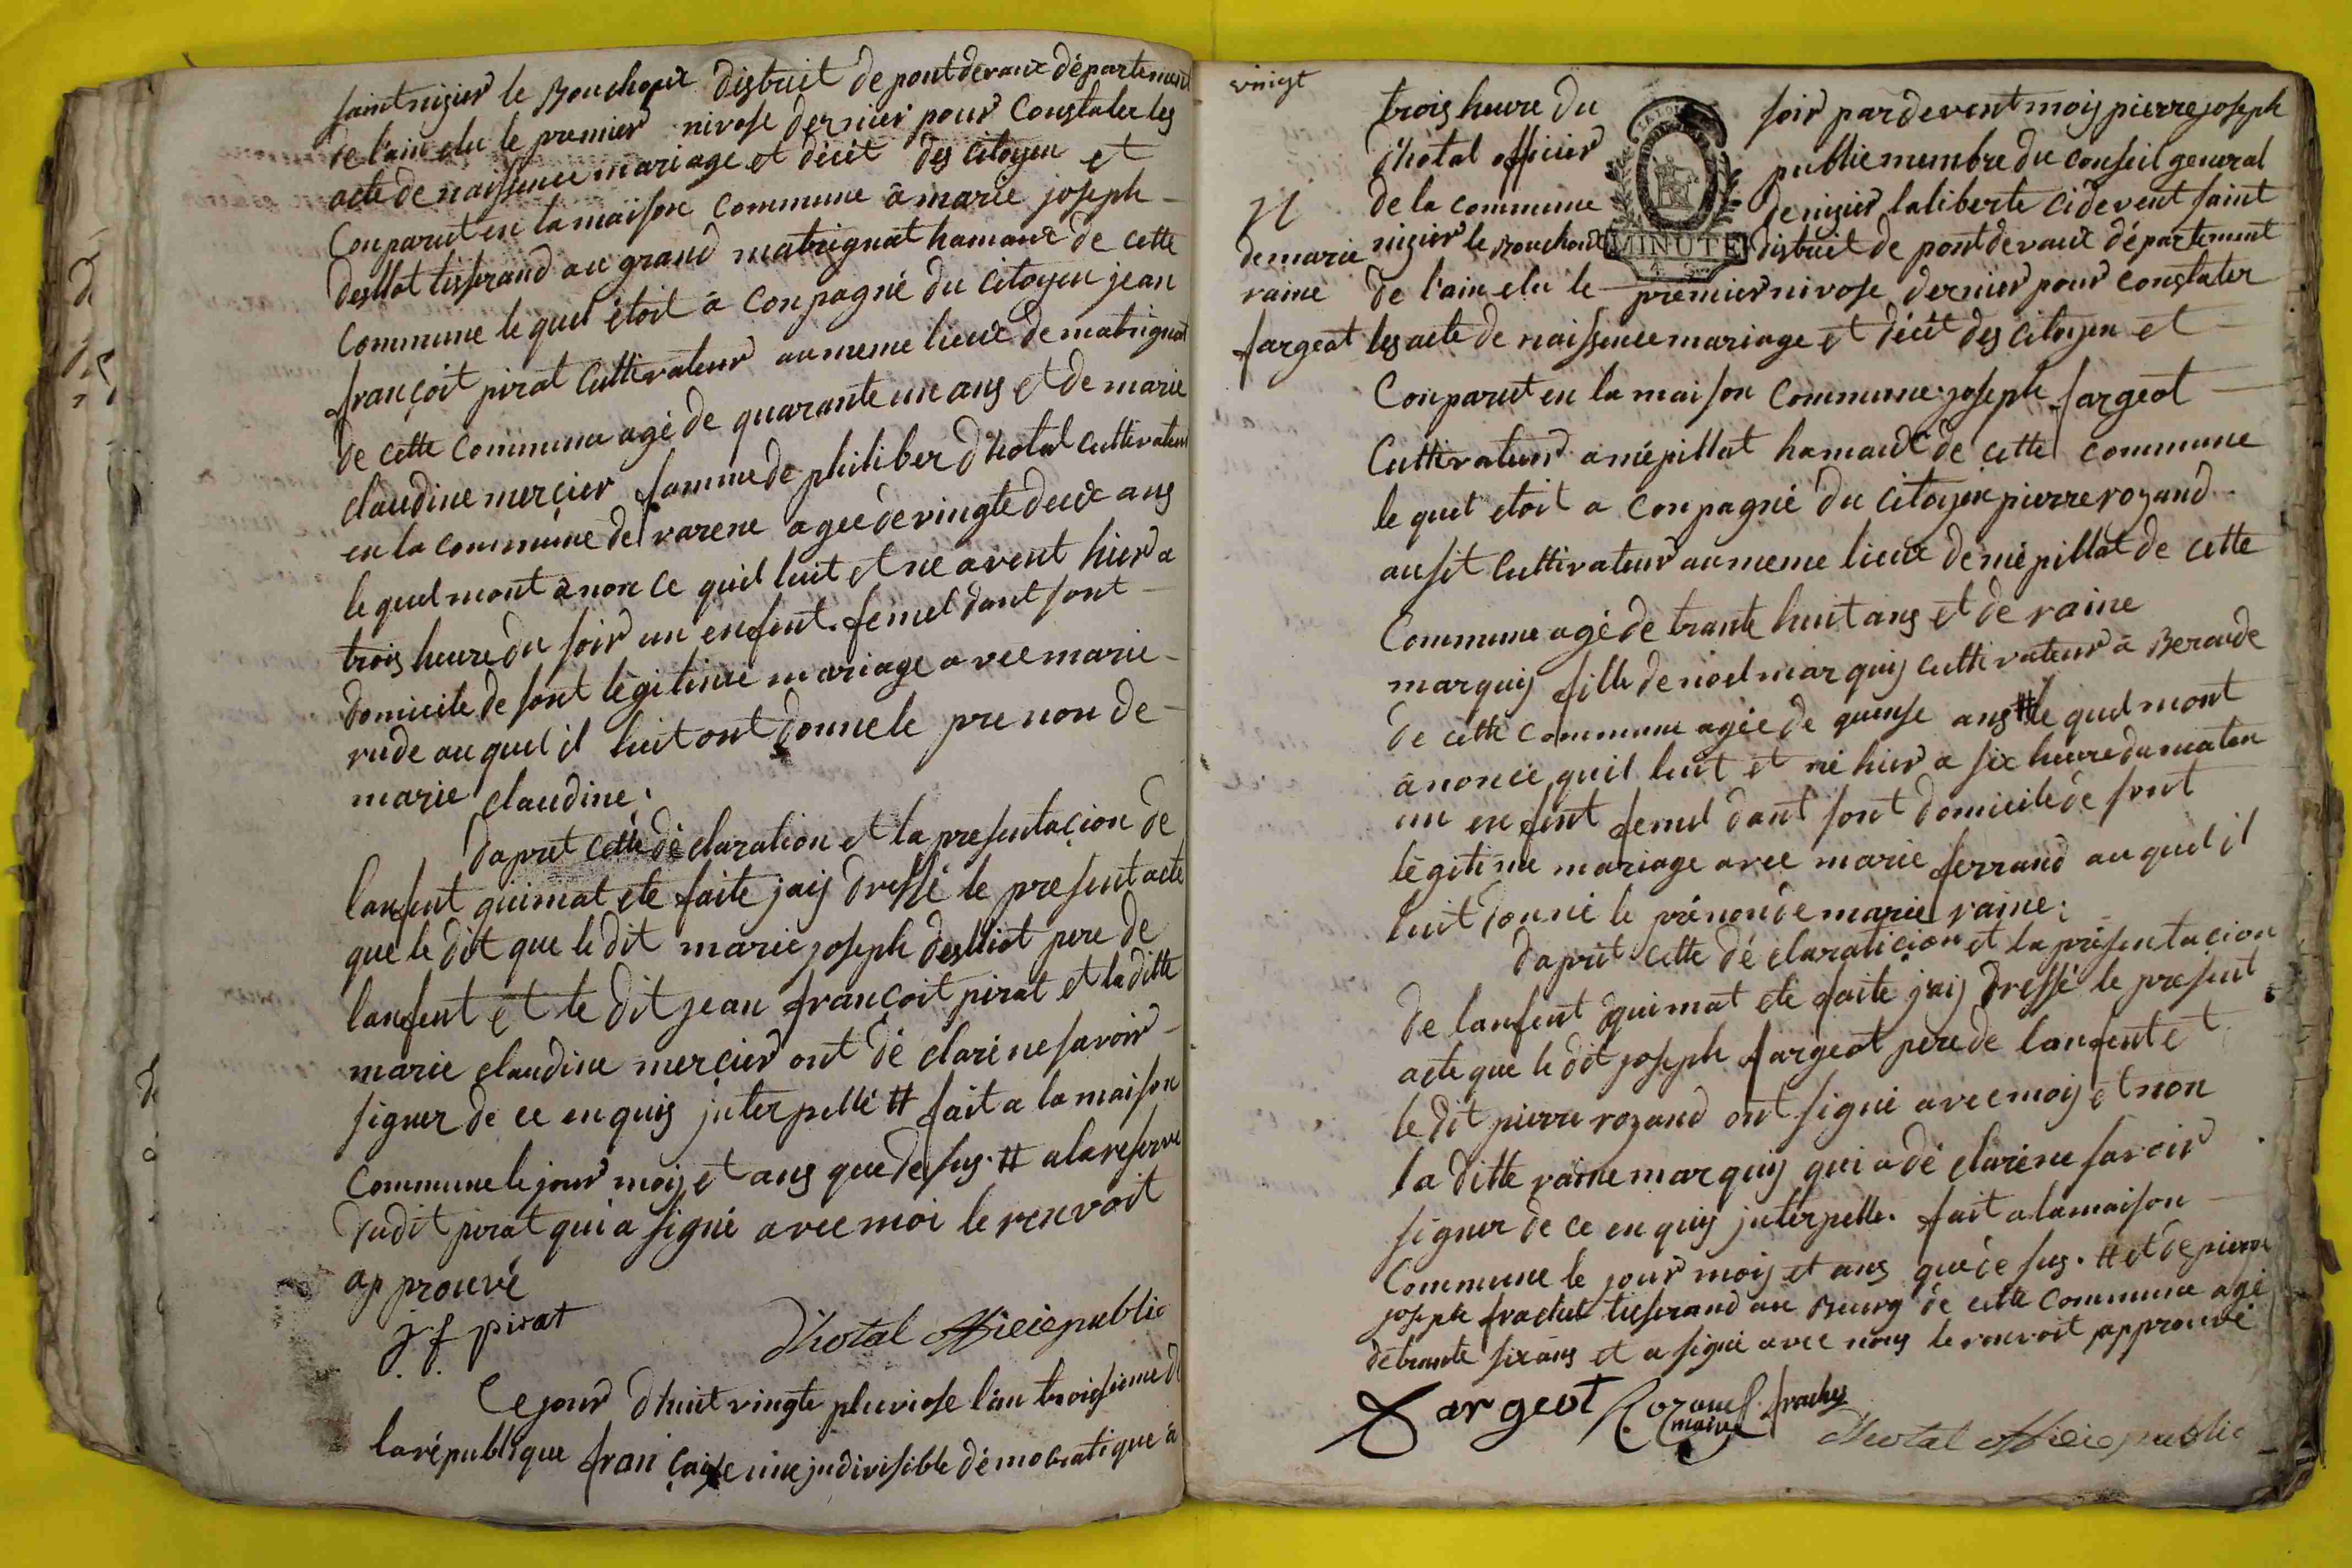 saint nizier le Bouchoux distruit de pont devaux département
de l'ain elu le premier nivose dernier pour Constater les
acte de naissence mariage et décèt des citoyen et
Conparut en la maison Commune à marie joseph
desllot tisserand au grand matrignat hamaux de cette
Commune le quel étoit à Conpagné du Citoyen jean
françoit pirat Cultivateur au meme lieux de matrignat
de cette Commune agé de quarante un ans et de marie
claudine mercier famme de philiber d'hotal cultivateur
en la commune de varene agee de vingte deux ans
le quel mont à non ce quil luit et ne avent hier a
trois heure du soir un enfent femel dant sont
domicile de sont légitime mariage avec marie
rude au quel il luit ont donne le pre non de
marie claudine.
dapret cette dé claration et la presentaçion de
lanfent qui mat ete faite jaij dressé le present acte
que le dit que le dit marie joseph deslliot pere de
lanfent et le dit jean françoit pirat et la ditte
marie claudine mercier ont dé claré ne savoir
signer de ce en quis jnterpellé # fait a la maison
Commune le jour moij et ans que de sus. # a la reserve
dudit pirat qui a signé avec moi le renvoit
ap prouvé
j. f. pirat
d'hotal officie public
Ce jour d'huit vingte pluviose l'an troisieme de
la république fran çaise une jndivisible démocratique à
vingt
trois heure du soir par devent moij pierre joseph
d'hotal officier public membre du conseil general
de la commune de nizier la liberte ci devent saint
nizier le Bouchoux distruit de pont devaux département
MINUTE
N
de marie
raine
fargeot
de l'ain elu le premier nivose dernier pour constater
les acte de naissence mariage et décèt des citoyen et
Conparut en la maison Commune joseph fargeot
Cultivateur a mépillat hamaux de cette commune
le quel etoit a Conpagné du Citoyen pierre rozand
ausit Cultivateur au meme lieux de mépillat de cette
Commune agé de trante huit ans et de raine
marquij fille de noel marquij cultivateur à Beraude
de cette commune agée de quense ans # le quel mont
ànoncé quil luit et né hier a six heure du maten
un enfent femel dant sont domicile de sont
légitime mariage avec marie ferrand au quel il
luit donné le prénon de marie raine.
daprit cette dé claraticion et la présentacion
de lanfent qui mat ete faite jaij dressé le present
acte que le dit joseph fargeot pere de lanfent et
le dit pierre rozand ont signé avec moij et non
la ditte raine marquij qui a dé claré ne savoir
signer de ce en quij jnterpelle. fait a la maison
Commune le jour moij et ans que de sus. # et de pierre
joseph frachet tisserand au Bourg de cette commune agé
de trante six ans et a signé avec nous le renvoit approuvé
fargeot Rozand maire frachet
d'hotal officie public